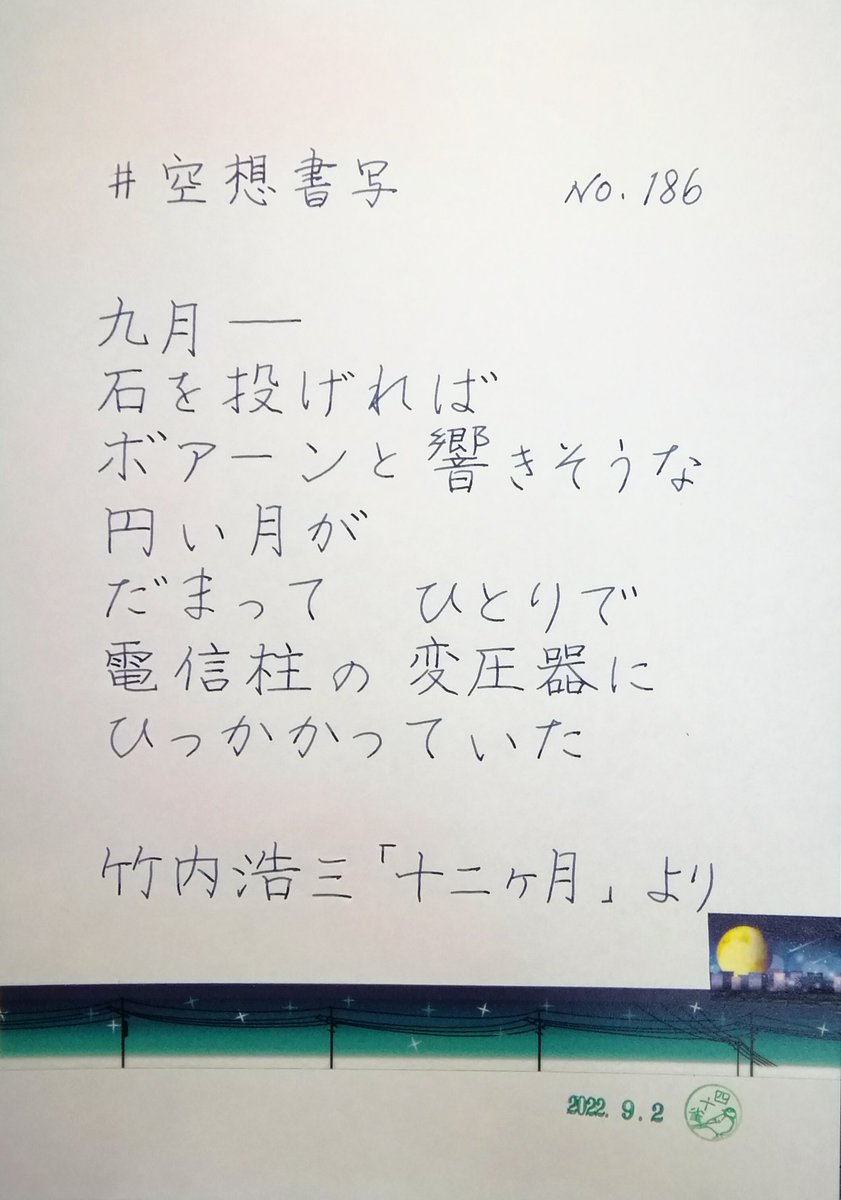 #空想書写 No.186
九月――
石を投げれば
ボアーンと響きそうな
円い月が
だまって　ひとりで
電信柱の変圧器に
ひっかかっていた
竹内浩三「十二ヶ月」より
2022. 9. 2